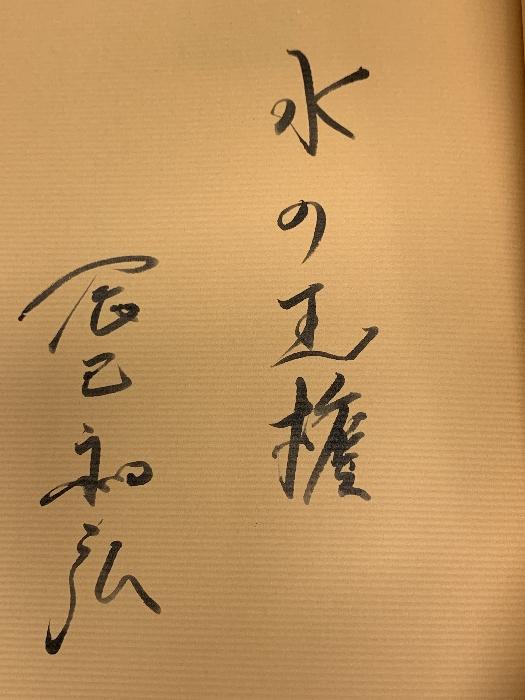 水の王権
辰巳和弘